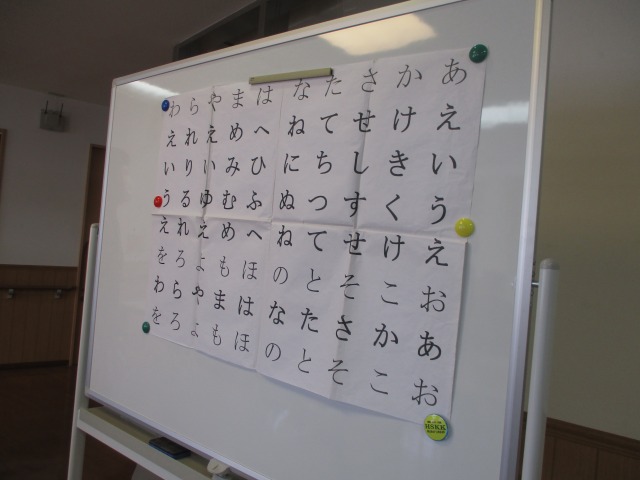 あえいうえおあお
かけきくけこかこ
させしすせそさそ
たてちつてとたと
なねにぬねのなの
はへひふへほはほ
まめみむめもまも
やえいゆえよやよ
られりるれろらろ
わえいうえをわを
HSKK